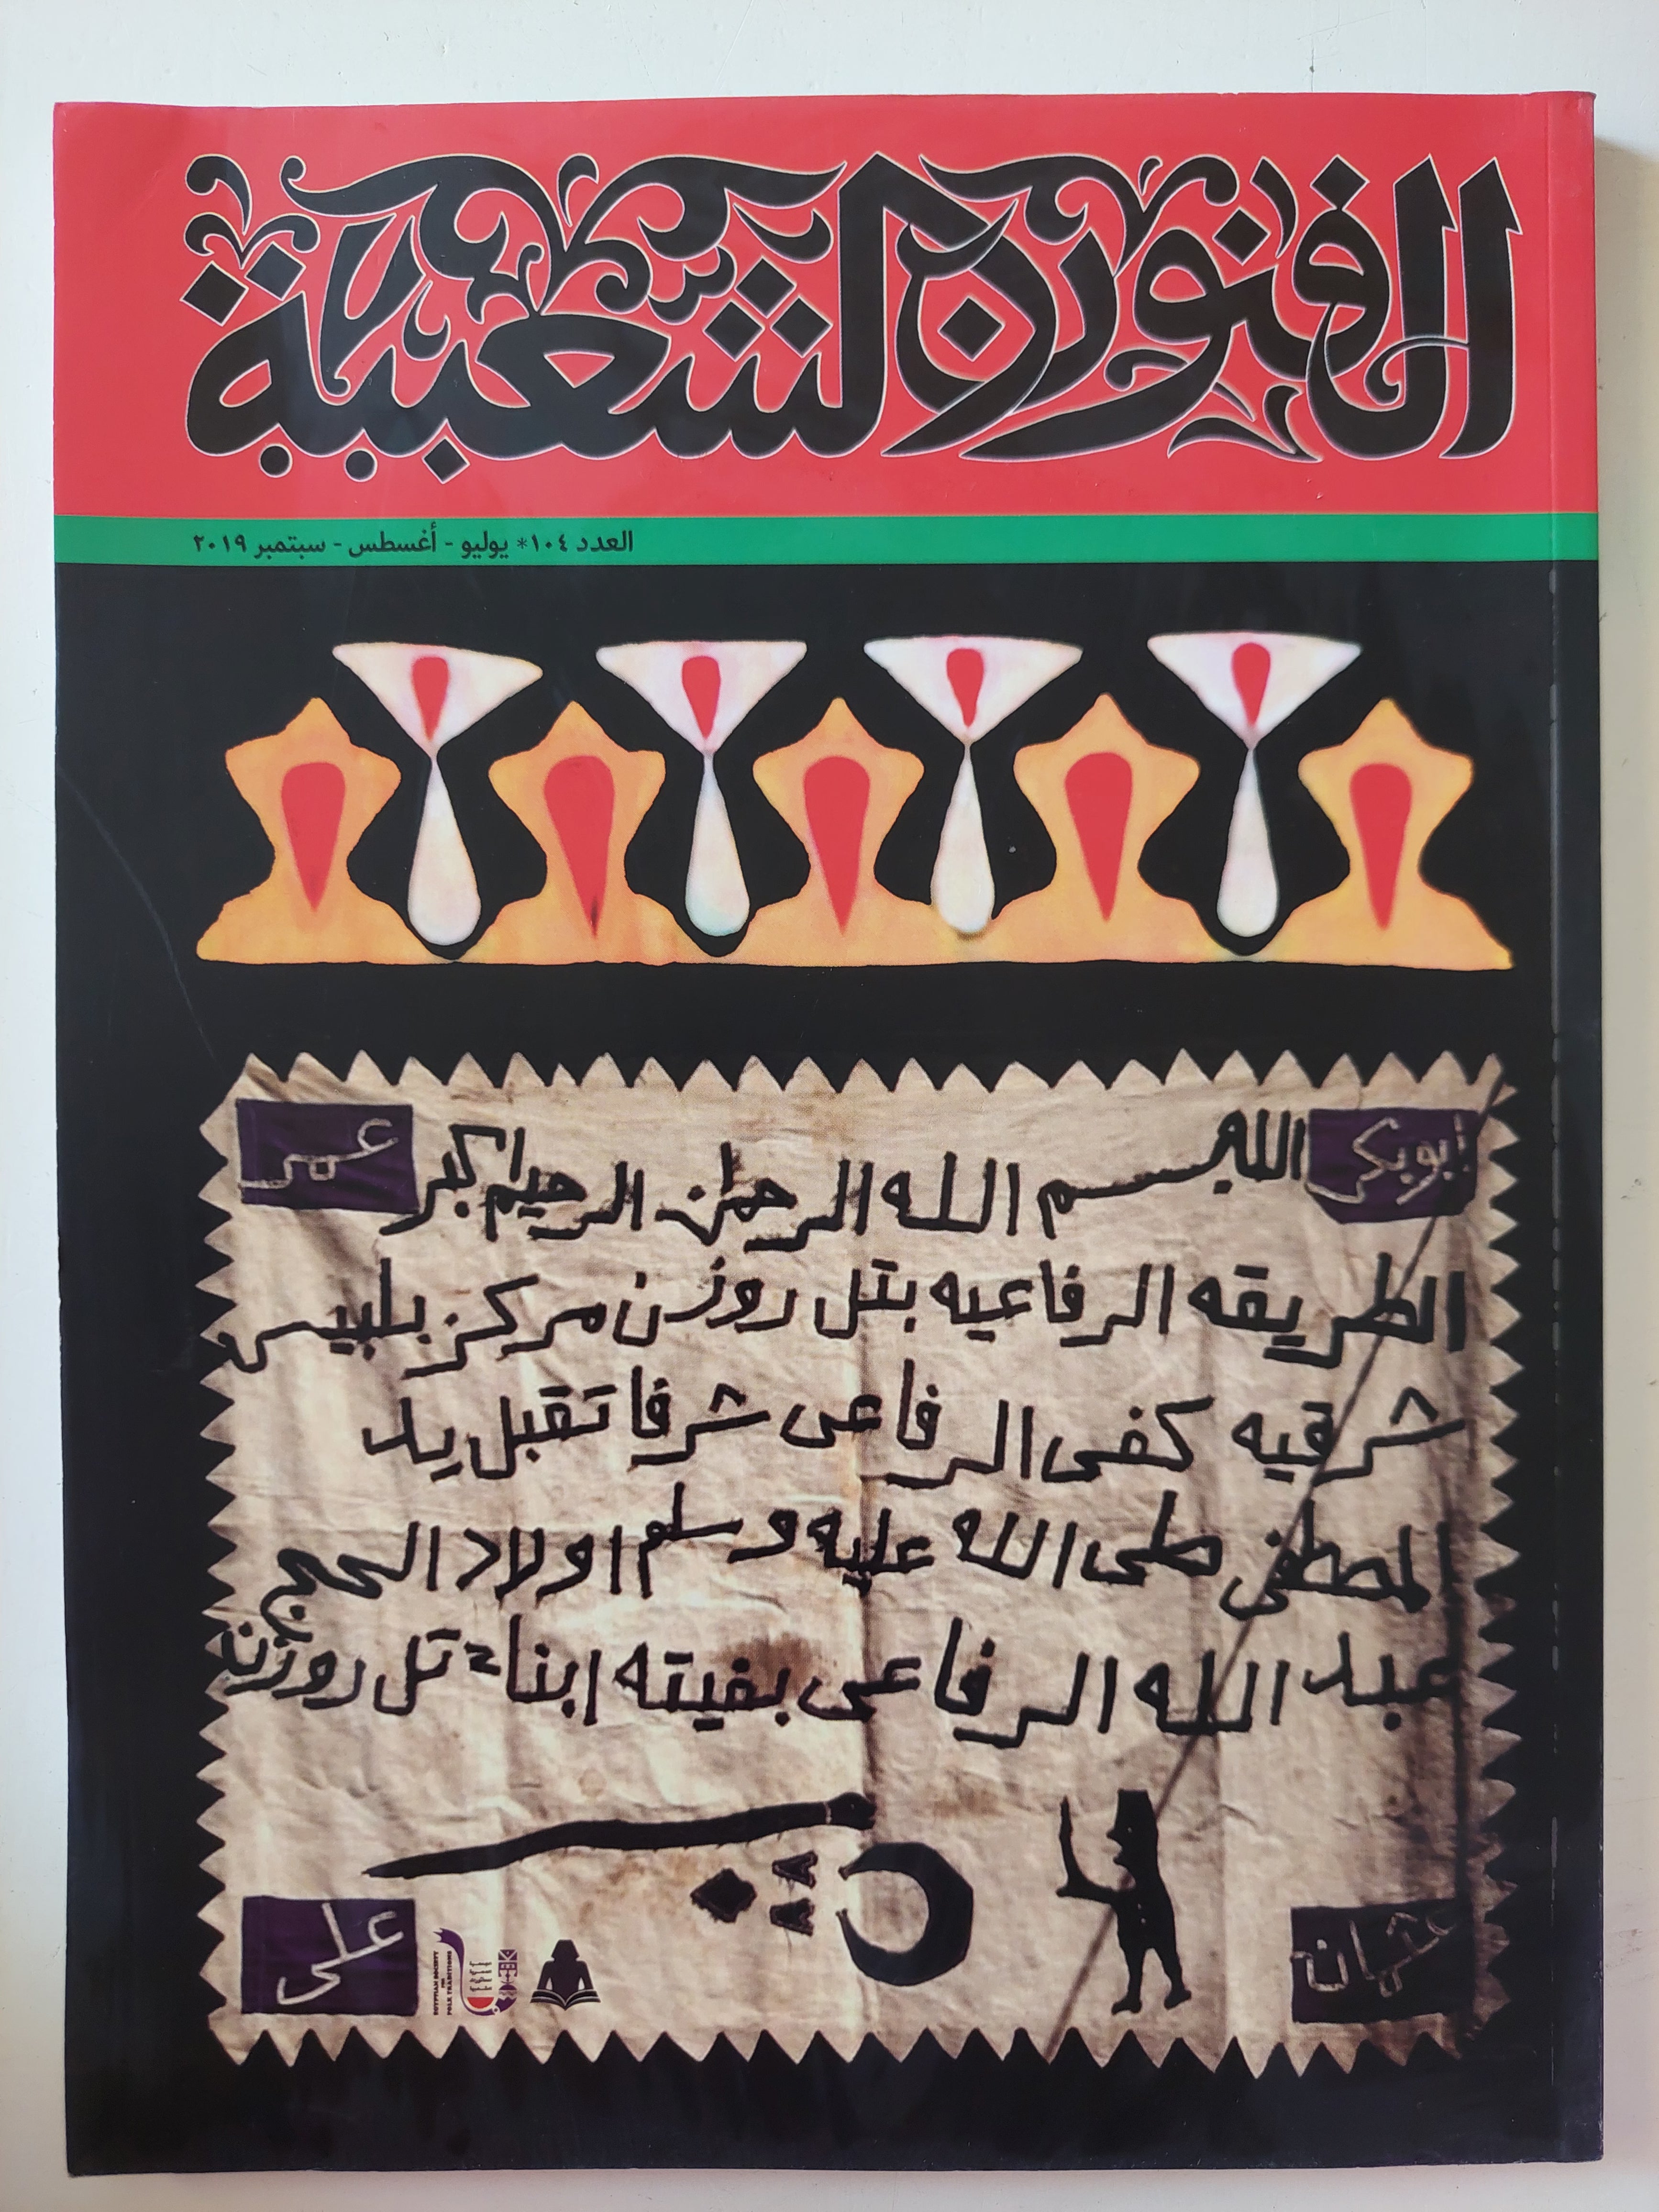 الفنون الشعبية
العدد ١٠٤* يوليو - أغسطس - سبتمبر ٢٠١٩
ابوبكر
الله
بسم الله الرحمن الرحيم
اكبر
عمر
الطريقه الرفاعيه بتل روزن مركز بلبيس
شرقيه كفى الرفاعى شرفا تقبل يد
المصطفى صلى الله عليه وسلم اولاد الحج
عبد الله الرفاعى بفيته ابناء تل روزن
عثمان
على
EGYPTIAN SOCIETY
FOR
FOLK TRADITIONS